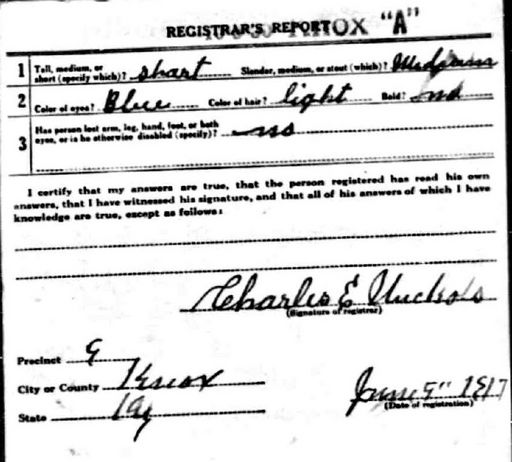 REGISTRAR'S REPORT KNOX "A"
1 Tall, medium, or short (specify which)? short Slender, medium, or stout (which)? Medium
2 Color of eyes? Blue Color of hair? light Bald? no
3 Has person lost arm, leg, hand, foot, or both eyes, or is he otherwise disabled (specify)? no
I certify that my answers are true, that the person registered has read his own
answers, that I have witnessed his signature, and that all of his answers of which I have
knowledge are true, except as follows:
Charles E Nuckols
(Signature of registrar)
Precinct
City or County Knox
State Ky
June 5" 1917
(Date of registration)